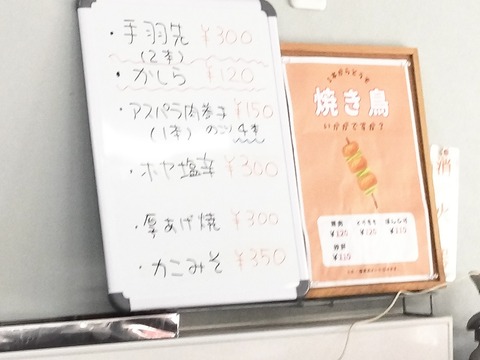 ・手羽先 ¥300
(2本)
・かしら ¥120
・アスパラ肉巻き ¥150
(1本) のこり4本
・ホヤ塩辛 ¥300
・厚あげ焼 ¥300
・カニみそ ¥350
1本からどうぞ
焼き鳥
いかがですか?
¥120 ¥120 ¥110
¥110